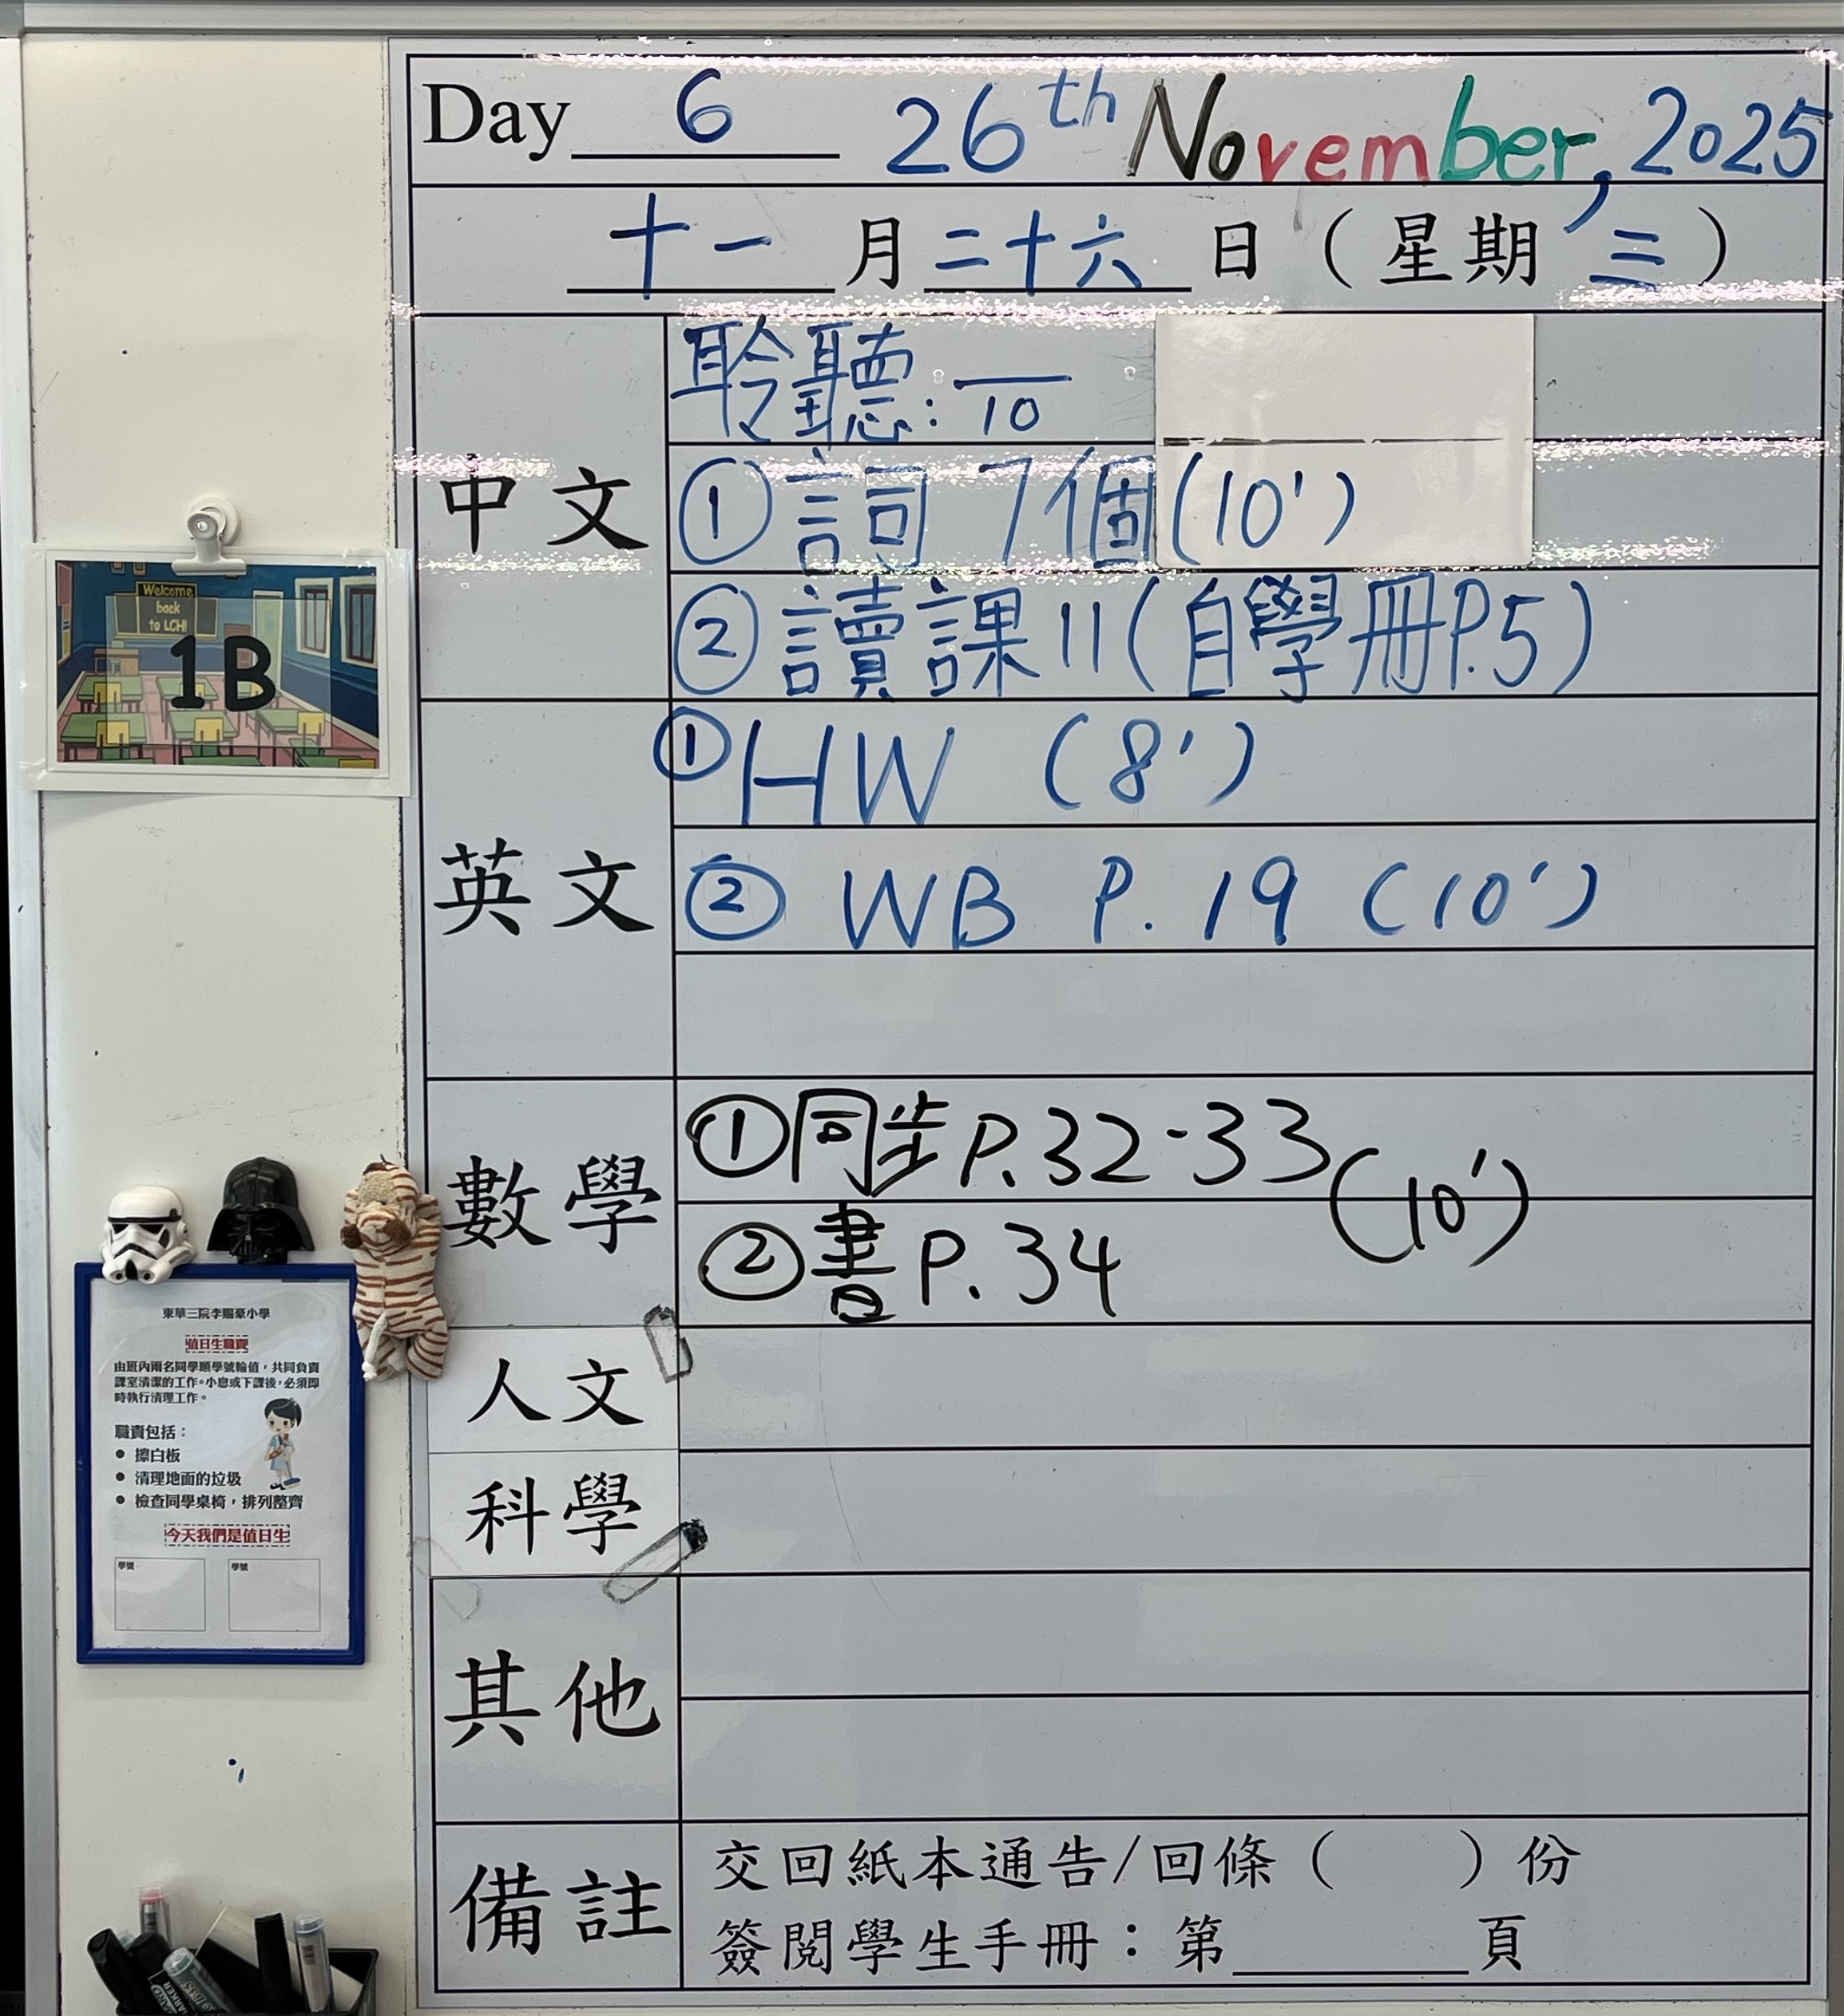 Day 6 26th November, 2025
十一月二十六日（星期三）
中文
聆聽: /10
①詞7個(10')
②讀課11(自學冊P.5)
英文
①HW (8')
② WB P.19 (10')
數學
①同步P.32-33
②書P.34
(10')
人文
科學
其他
備註
交回紙本通告/回條（ ）份
簽閱學生手冊：第______頁
Welcome
back
to LCH!
1B
東華三院李賜豪小學
值日生職責
由班內兩名同學順學號輪值，共同負責
課室清潔的工作。小息或下課後，必須即
時執行清理工作。
職責包括：
● 擦白板
● 清理地面的垃圾
● 檢查同學桌椅，排列整齊
今天我們是值日生
學號 學號